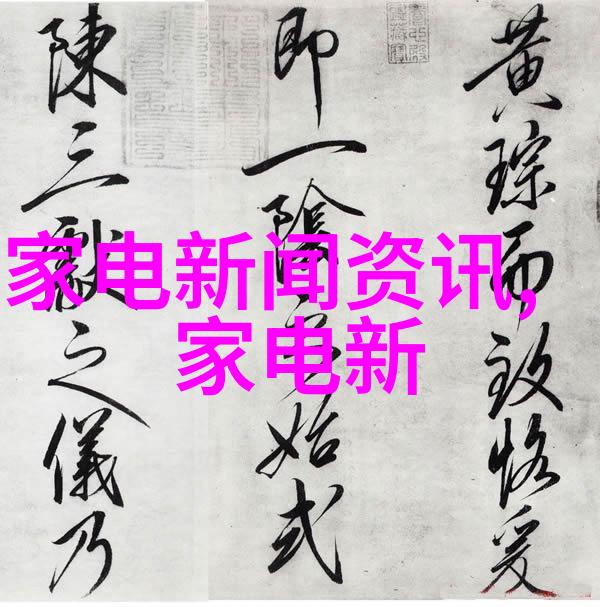 黄琮而致恪爰
即一陰之始式
陳三獻之儀乃
家电新闻资讯,
家电新